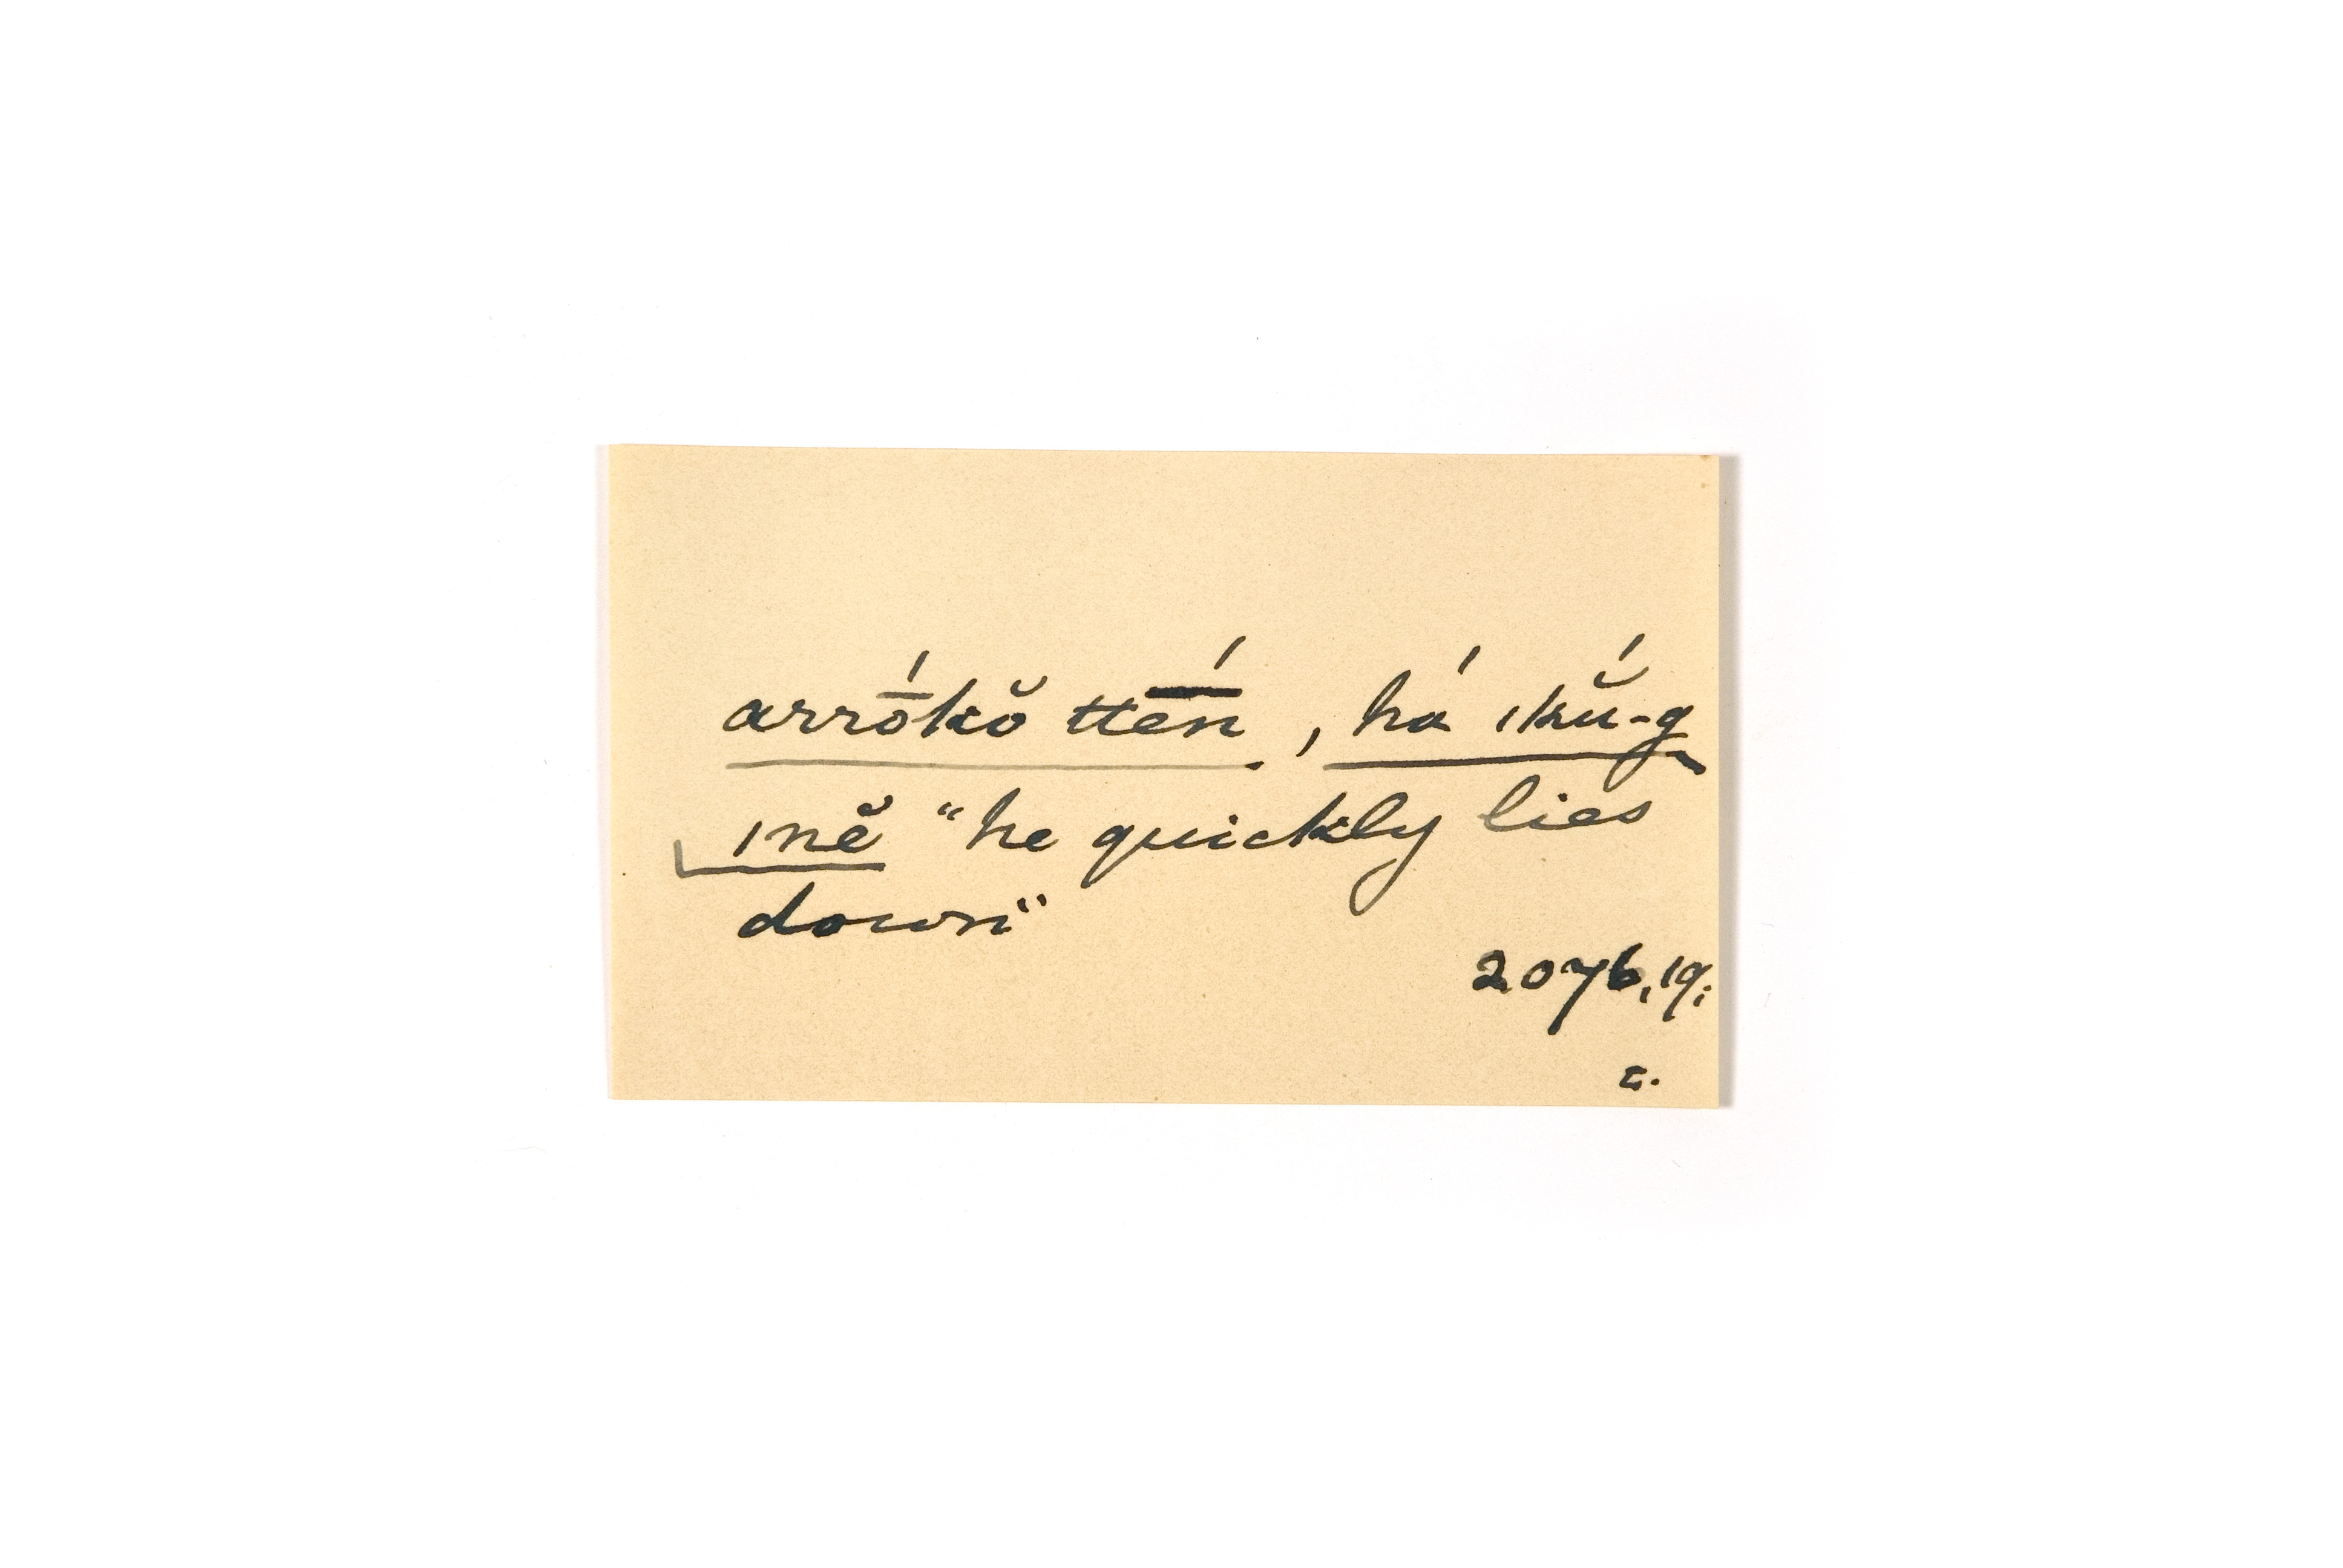 arrṓkŏ ttḗn, há ıkŭ́-g
ınĕ “he quickly lies
down”
2076,19;
c.